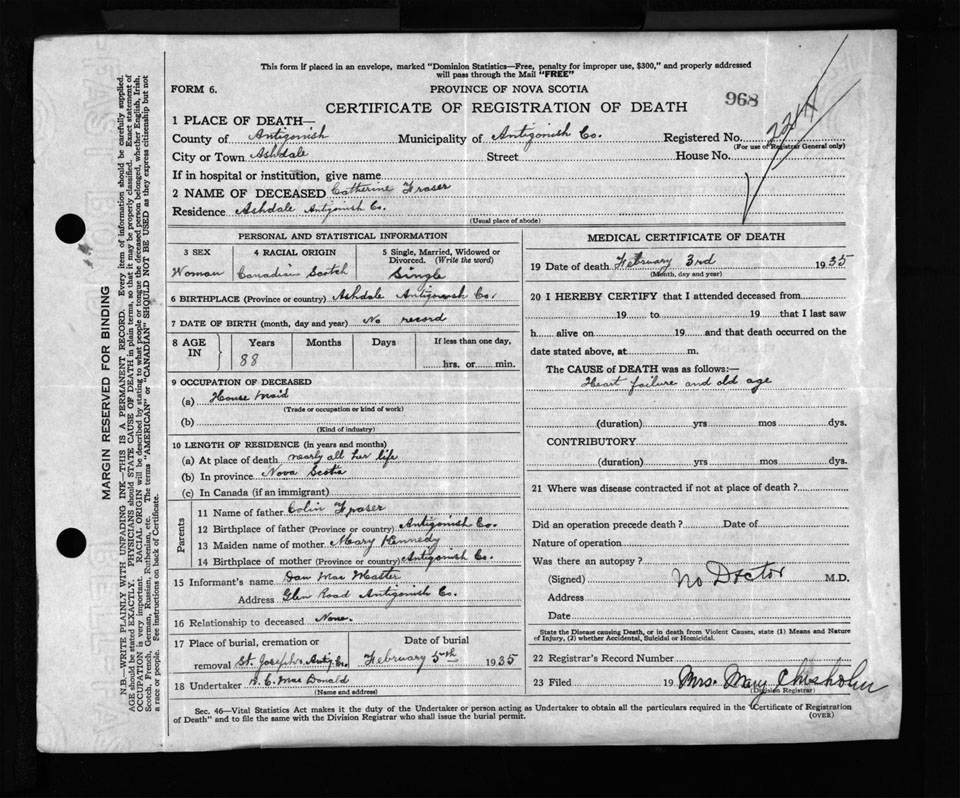 This form if placed in an envelope, marked "Dominion Statistics—Free, penalty for improper use, $300," and properly addressed
will pass through the Mail "FREE"
FORM 6.
PROVINCE OF NOVA SCOTIA
968
CERTIFICATE OF REGISTRATION OF DEATH
1 PLACE OF DEATH—
County of Antigonish Municipality of Antigonish Co. Registered No.
(For use of Registrar General only)
City or Town Ashdale Street House No.
If in hospital or institution, give name
2 NAME OF DECEASED Catherine Fraser
Residence Ashdale Antigonish Co.
(Usual place of abode)
PERSONAL AND STATISTICAL INFORMATION
3 SEX 4 RACIAL ORIGIN 5 Single, Married, Widowed or
Divorced. (Write the word)
Woman Canadian Scotch Single
6 BIRTHPLACE (Province or country) Ashdale Antigonish Co.
7 DATE OF BIRTH (month, day and year) No record
8 AGE IN Years Months Days If less than one day,
88 hrs. or min.
9 OCCUPATION OF DECEASED
(a) House Maid
(Trade or occupation or kind of work)
(b)
(Kind of industry)
10 LENGTH OF RESIDENCE (in years and months)
(a) At place of death nearly all her life
(b) In province Nova Scotia
(c) In Canada (if an immigrant)
Parents
11 Name of father Colin Fraser
12 Birthplace of father (Province or country) Antigonish Co.
13 Maiden name of mother Mary Kennedy
14 Birthplace of mother (Province or country) Antigonish Co.
15 Informant's name Dan Mac
Address Glen Road Antigonish Co.
16 Relationship to deceased None.
17 Place of burial, cremation or Date of burial
removal St. Josephs Antig. Co. February 5th 1935
18 Undertaker MacDonald
(Name and address)
MEDICAL CERTIFICATE OF DEATH
19 Date of death February 3rd 1935
(Month, day and year)
20 I HEREBY CERTIFY that I attended deceased from
19 to 19 that I last saw
h alive on 19 and that death occurred on the
date stated above, at m.
The CAUSE of DEATH was as follows:—
Heart failure and old age
(duration) yrs mos dys.
CONTRIBUTORY
(duration) yrs mos dys.
21 Where was disease contracted if not at place of death?
Did an operation precede death? Date of
Nature of operation
Was there an autopsy?
(Signed) No Doctor M.D.
Address
Date
State the Disease causing Death, or in death from Violent Causes, state (1) Means and Nature
of Injury, (2) whether Accidental, Suicidal or Homicidal.
22 Registrar's Record Number
23 Filed 19 Mrs. Mary Chisholm
(Division Registrar)
Sec. 46—Vital Statistics Act makes it the duty of the Undertaker or person acting as Undertaker to obtain all the particulars required in the "Certificate of Registration
of Death" and to file the same with the Division Registrar who shall issue the burial permit.
(OVER)
MARGIN RESERVED FOR BINDING
N.B.—WRITE PLAINLY WITH UNFADING INK—THIS IS A PERMANENT RECORD. Every item of information should be carefully supplied.
AGE should be stated EXACTLY. PHYSICIANS should STATE CAUSE OF DEATH in plain terms, so that it may be properly classified. Exact statement of
OCCUPATION is very important. RACIAL ORIGIN will be described by stating to what people or tongue the deceased person belonged, whether English, Irish,
Scotch, French, German, Russian, Ruthenian, etc. The terms "AMERICAN" or "CANADIAN" SHOULD NOT BE USED as they express citizenship but not
a race or people. See instructions on back of Certificate.